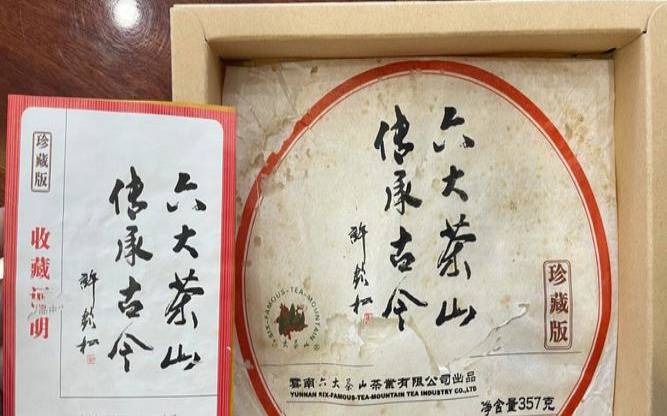 珍藏版
收藏
明
六大茶山
传承古今
六大茶山
传承古今
珍藏版
SIX-FAMOUS-TEA-MOUNTAIN
雲南六大茶山茶業有限公司出品
YUNNAN RIX-FAMOUS-TEA-MOUNTAIN TEA INDUSTRY CO.,LTD
净含量357克